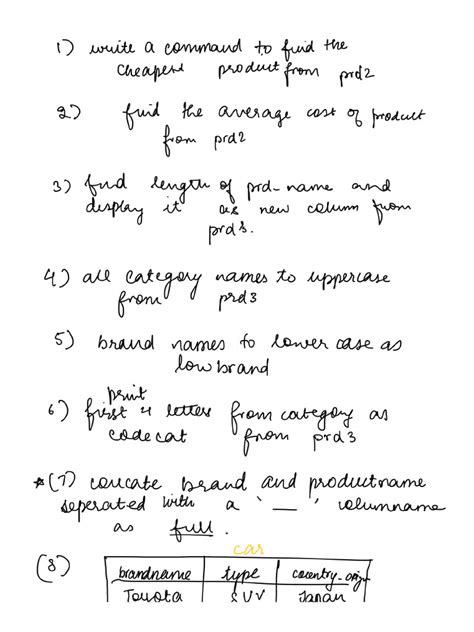 1) write a command to find the
cheapest product from prd2
2) find the average cost of product
from prd2
3) find length of prd-name and
display it as new column from
prd3.
4) all category names to uppercase
from prd3
5) brand names to lower case as
lowbrand
6) print first 4 letters from category as
codecat from prd3
*(7) concate brand and productname
seperated with a '__', columname
as full.
car
(8) brandname type country-orig
Toyota SUV Japan